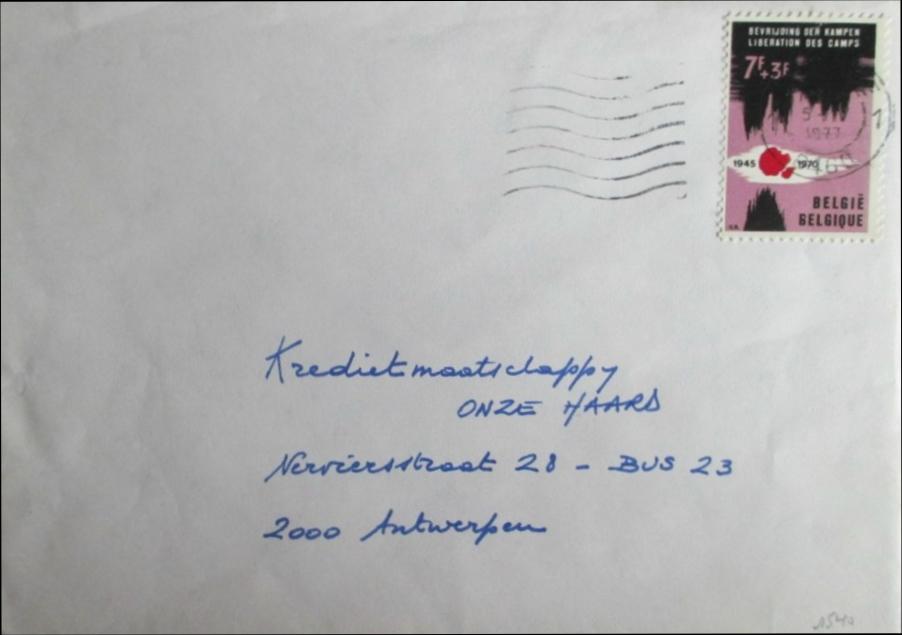 BEVRIJDING DER KAMPEN
LIBERATION DES CAMPS
7F+3F
1977
1945 1970
BELGIË
BELGIQUE
Kredietmaatschappy
ONZE HAARD
Nerviersstraat 28 - BUS 23
2000 Antwerpen